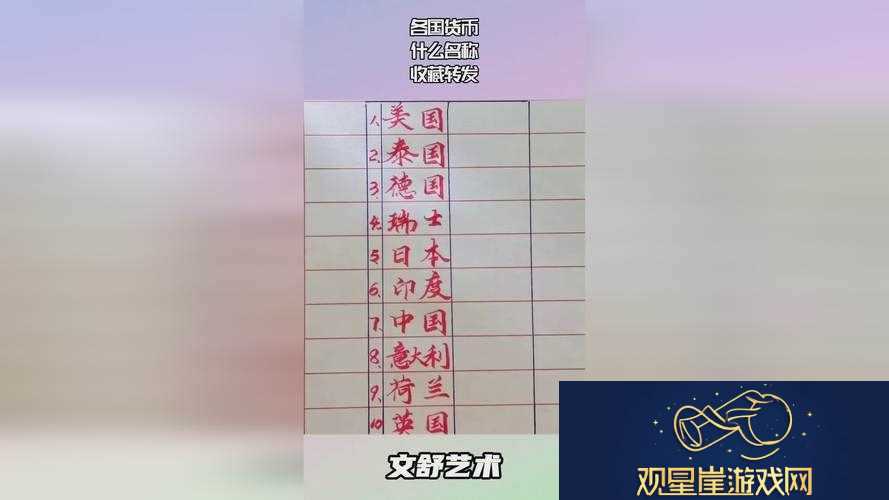 各国货币
什么名称
收藏转发
1、美国
2、泰国
3、德国
4、瑞士
5、日本
6、印度
7、中国
8、意大利
9、荷兰
10、英国
文舒艺术
观星崖游戏网